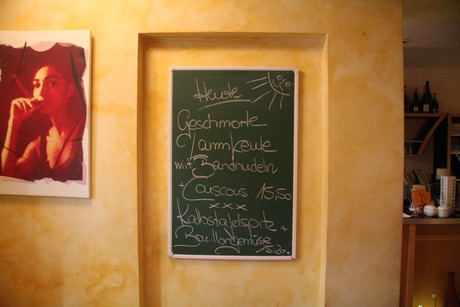 Heute
Geschmorte
Lammkeule
mit Bandnudeln
+ Couscous 15,50
xxx
Kalbstafelspitz +
Bouillongemüse
15.20.